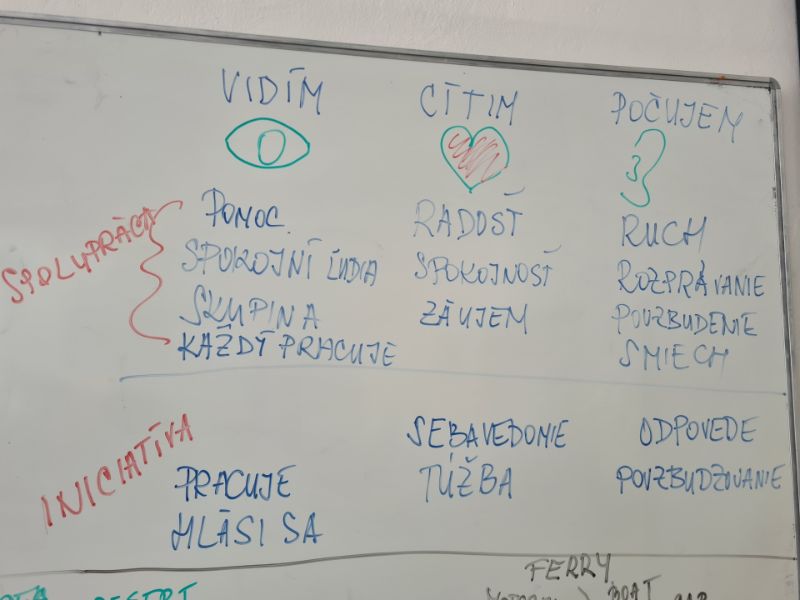 VIDÍM CÍTIM POČUJEM
SPOLUPRÁCA
POMOC RADOSŤ RUCH
SPOKOJNÍ ĽUDIA SPOKOJNOSŤ ROZPRÁVANIE
SKUPINA ZÁUJEM POVZBUDENIE
KAŽDÝ PRACUJE SMIECH
INICIATÍVA
SEBAVEDOMIE ODPOVEDE
PRACUJE TÚŽBA POVZBUDZOVANIE
HLÁSI SA
FERRY
BOAT